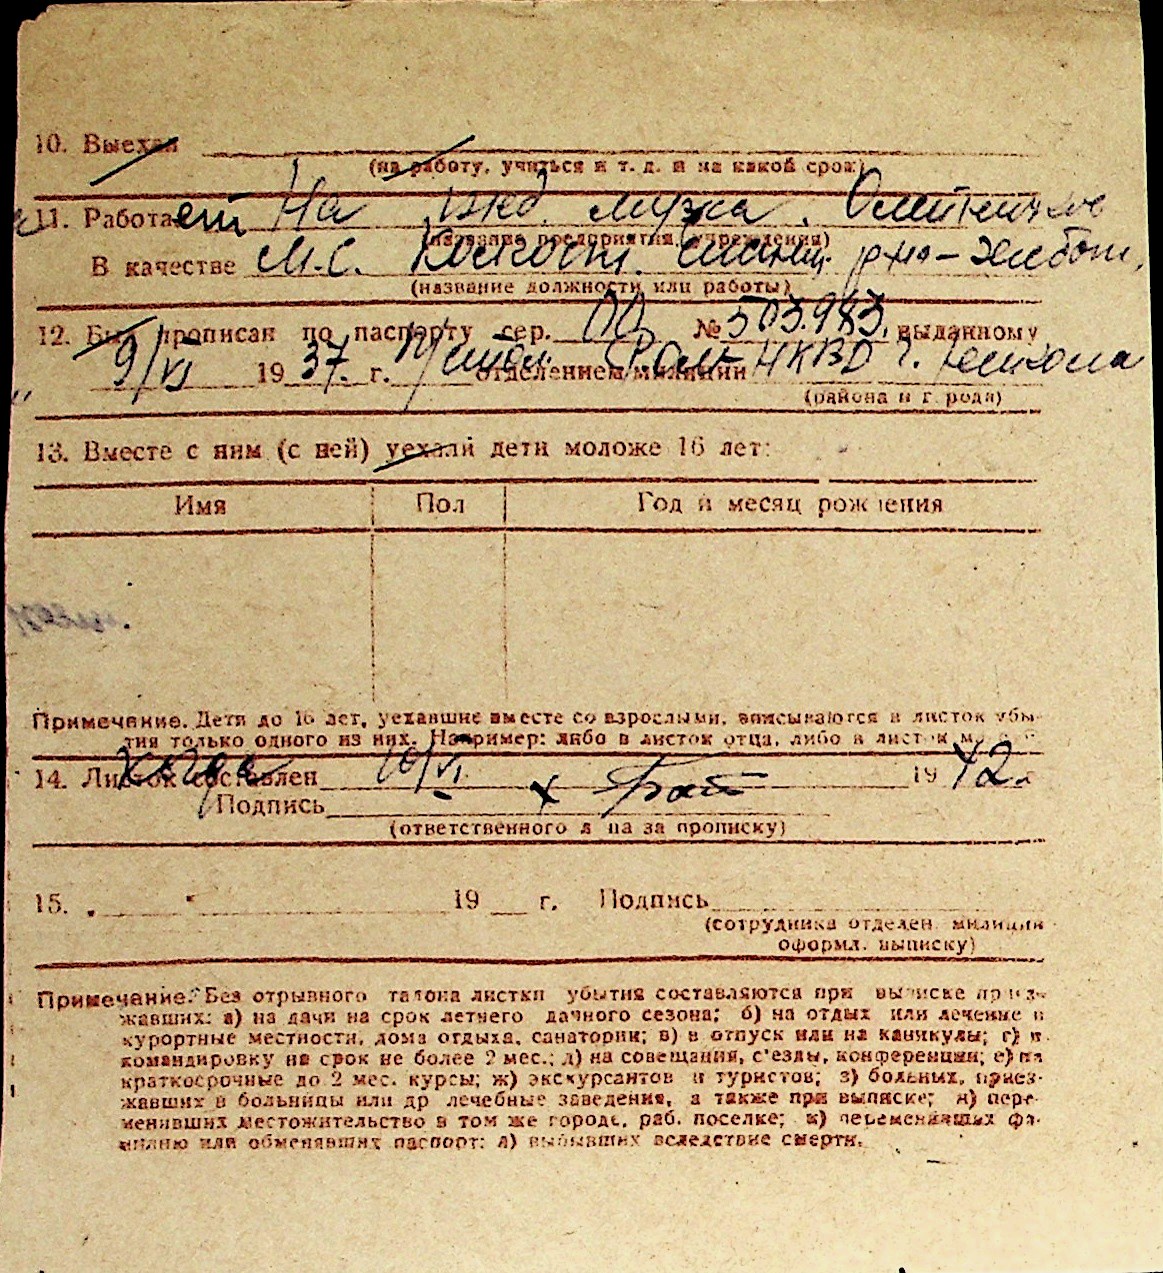 10. Выехал
(на работу, учиться и т. д. и на какой срок)
11. Работает На ижд. мужа.
(название предприятия, учреждения)
В качестве М.С.
(название должности или работы)
12. Был прописан по паспорту сер. № 503.983, выданному
9/VI 1937. г. отделением милиции НКВД г.
(района и города)
13. Вместе с ним (с ней) уехали дети моложе 16 лет:
Имя Пол Год и месяц рождения
Примечание. Дети до 16 лет, уехавшие вместе со взрослыми, вписываются в листок убы-
тия только одного из них. Например: либо в листок отца, либо в листок
14. Листок составлен 10/VI 1942 г
Подпись
(ответственного лица за прописку)
15. „ " 19 г. Подпись
(сотрудника отделен. милиции
оформл. выписку)
Примечание. Без отрывного талона листки убытия составляются при выписке приез-
жавших: а) на дачи на срок летнего дачного сезона; б) на отдых или лечение в
курортные местности, дома отдыха, санатории; в) в отпуск или на каникулы; г) в
командировку на срок не более 2 мес.; д) на совещания, с'езды, конференции; е) на
краткосрочные до 2 мес. курсы; ж) экскурсантов и туристов; з) больных, приез-
жавших в больницы или др лечебные заведения, а также при выписке; и) пере-
менивших местожительство в том же городе, раб. поселке; к) переменивших фа-
милию или обменявших паспорт; л) выбывших вследствие смерти.